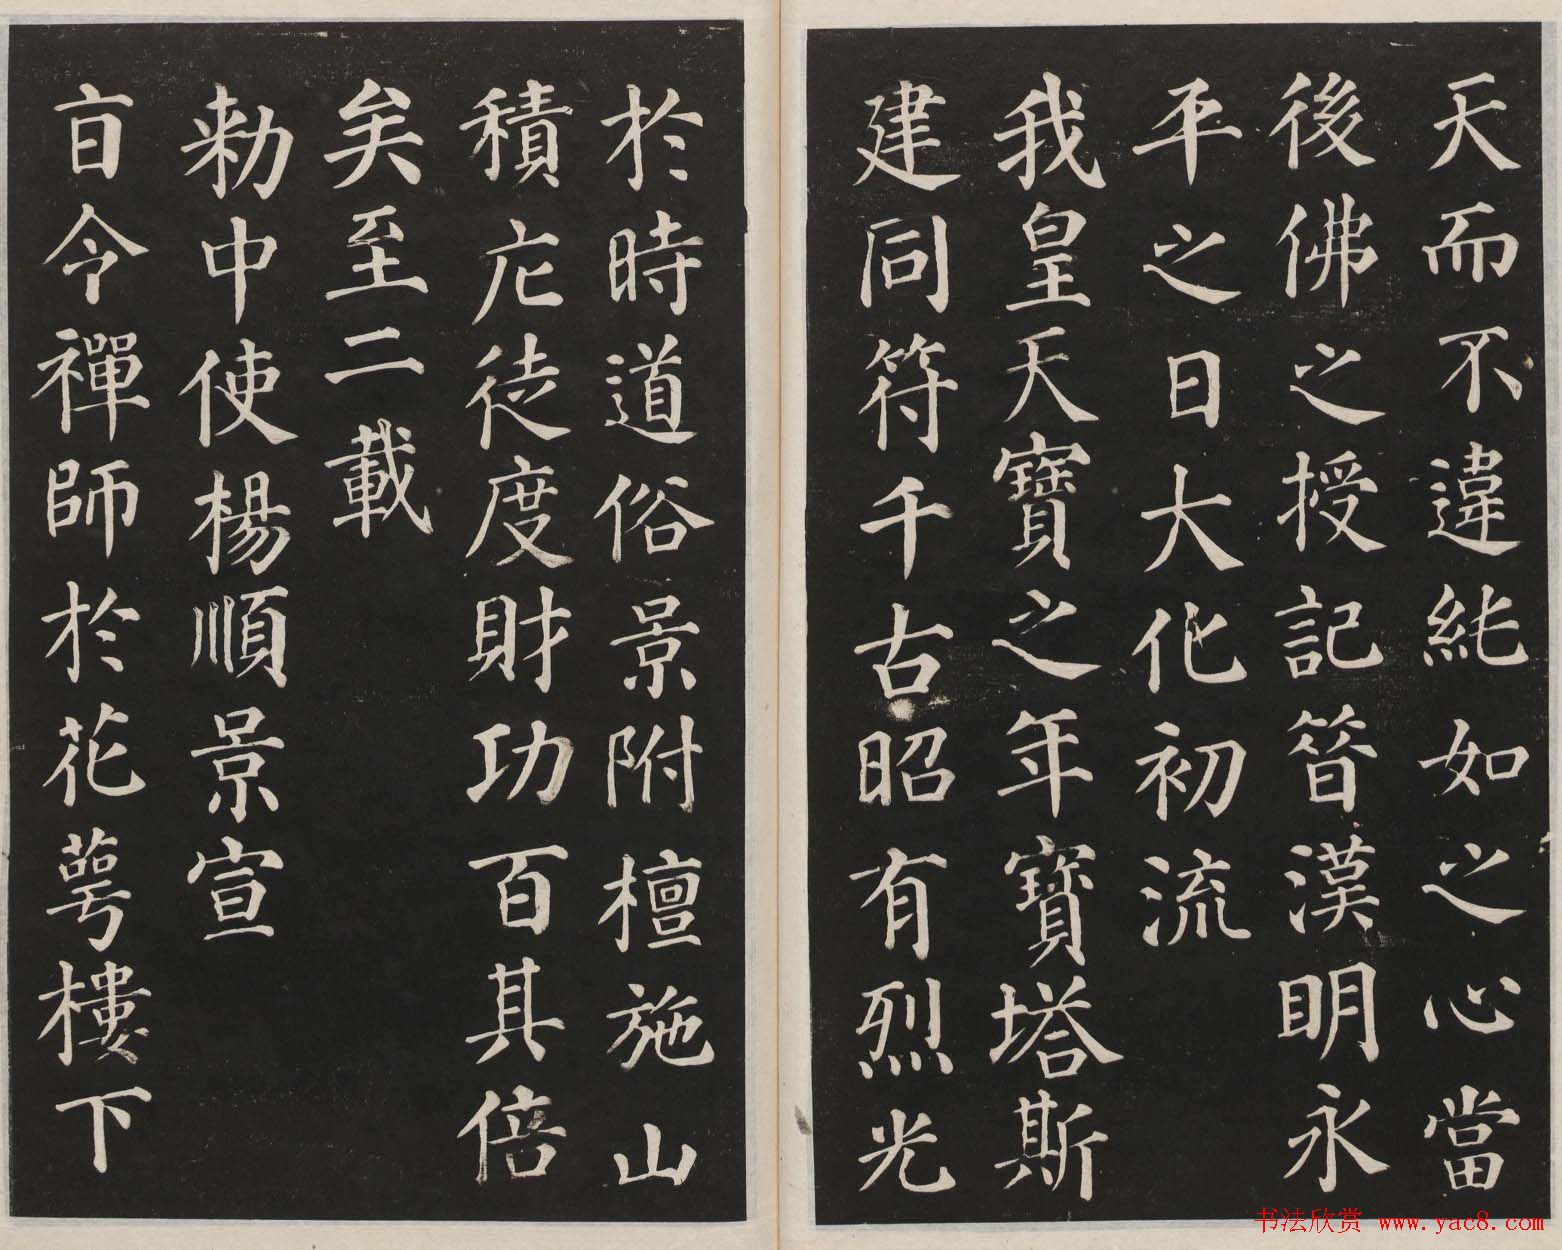 天而不違純如之心當
後佛之授記昔漢明永
平之日大化初流
我皇天寶之年寶塔斯
建同符千古昭有烈光
於時道俗景附檀施山
積庀徒度財功百其倍
矣至二載
勅中使楊順景宣
旨令禪師於花萼樓下
书法欣赏 www.yac8.com